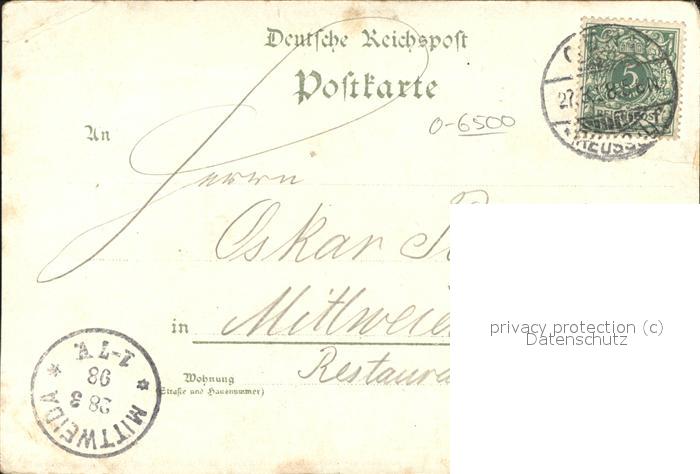 Deutsche Reichspost
Postkarte
0-6500
5
REICHSPOST
27.
REUSS
An
Herrn
Oskar
in Mittweid
Restaura
Wohnung
(Straße und Hausnummer)
privacy protection (c)
Datenschutz
MITTWEIDA
28
3
98
1-7V.